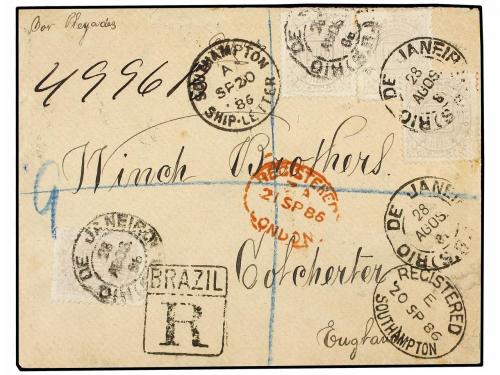 Por Pleyades
49961
SOUTHAMPTON
A
SP 20
86
SHIP-LETTER
RIO DE JANEIRO
28
AGOS
86
RIO DE JANEIRO
28
AGOS
8
Winch Brothers.
REGISTERED
A
21 SP 86
LONDON
RIO DE JANEIRO
28
AGOS
RIO DE JANEIRO
28
AGOS
86
Colchester
BRAZIL
R
REGISTERED
E
20 SP 86
SOUTHAMPTON
England